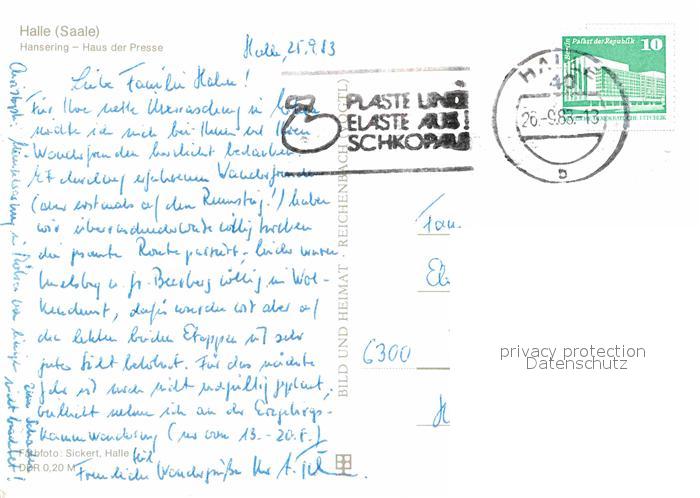 Halle (Saale)
Hansering – Haus der Presse
Halle, 25.9.83
Liebe Familie Hahn!
Für Ihre nette Überraschung in
möchte ich mich bei Ihnen und Ihren
Wanderfreunden herzlichst bedanken.
erfahrenen Wanderfreunde
(aber erstmals auf dem Rennstieg!) haben
wir völlig trocken
die gesamte Route passiert, leider waren
Inselsberg u. gr. Beerberg völlig in Wol-
kendunst, dafür wurden wir aber auf
den letzten beiden Etappen mit sehr
guter Sicht belohnt. Für das nächste
Jahr ist noch nicht endgültig geplant,
vielleicht nehme ich an der Erzgebirgs-
kammwanderung (nur vom 13.-20.8.)
teil
Freundliche Wandergrüße Ihr
Farbfoto: Sickert, Halle
DDR 0,20 M
BILD UND HEIMAT REICHENBACH (VOGTL)
PLASTE UND
ELASTE AUS
SCHKOPAU
HALLE
40
26.-9.83.-13
b
Berlin Palast der Republik 10
Fam.
6300
privacy protection
Datenschutz